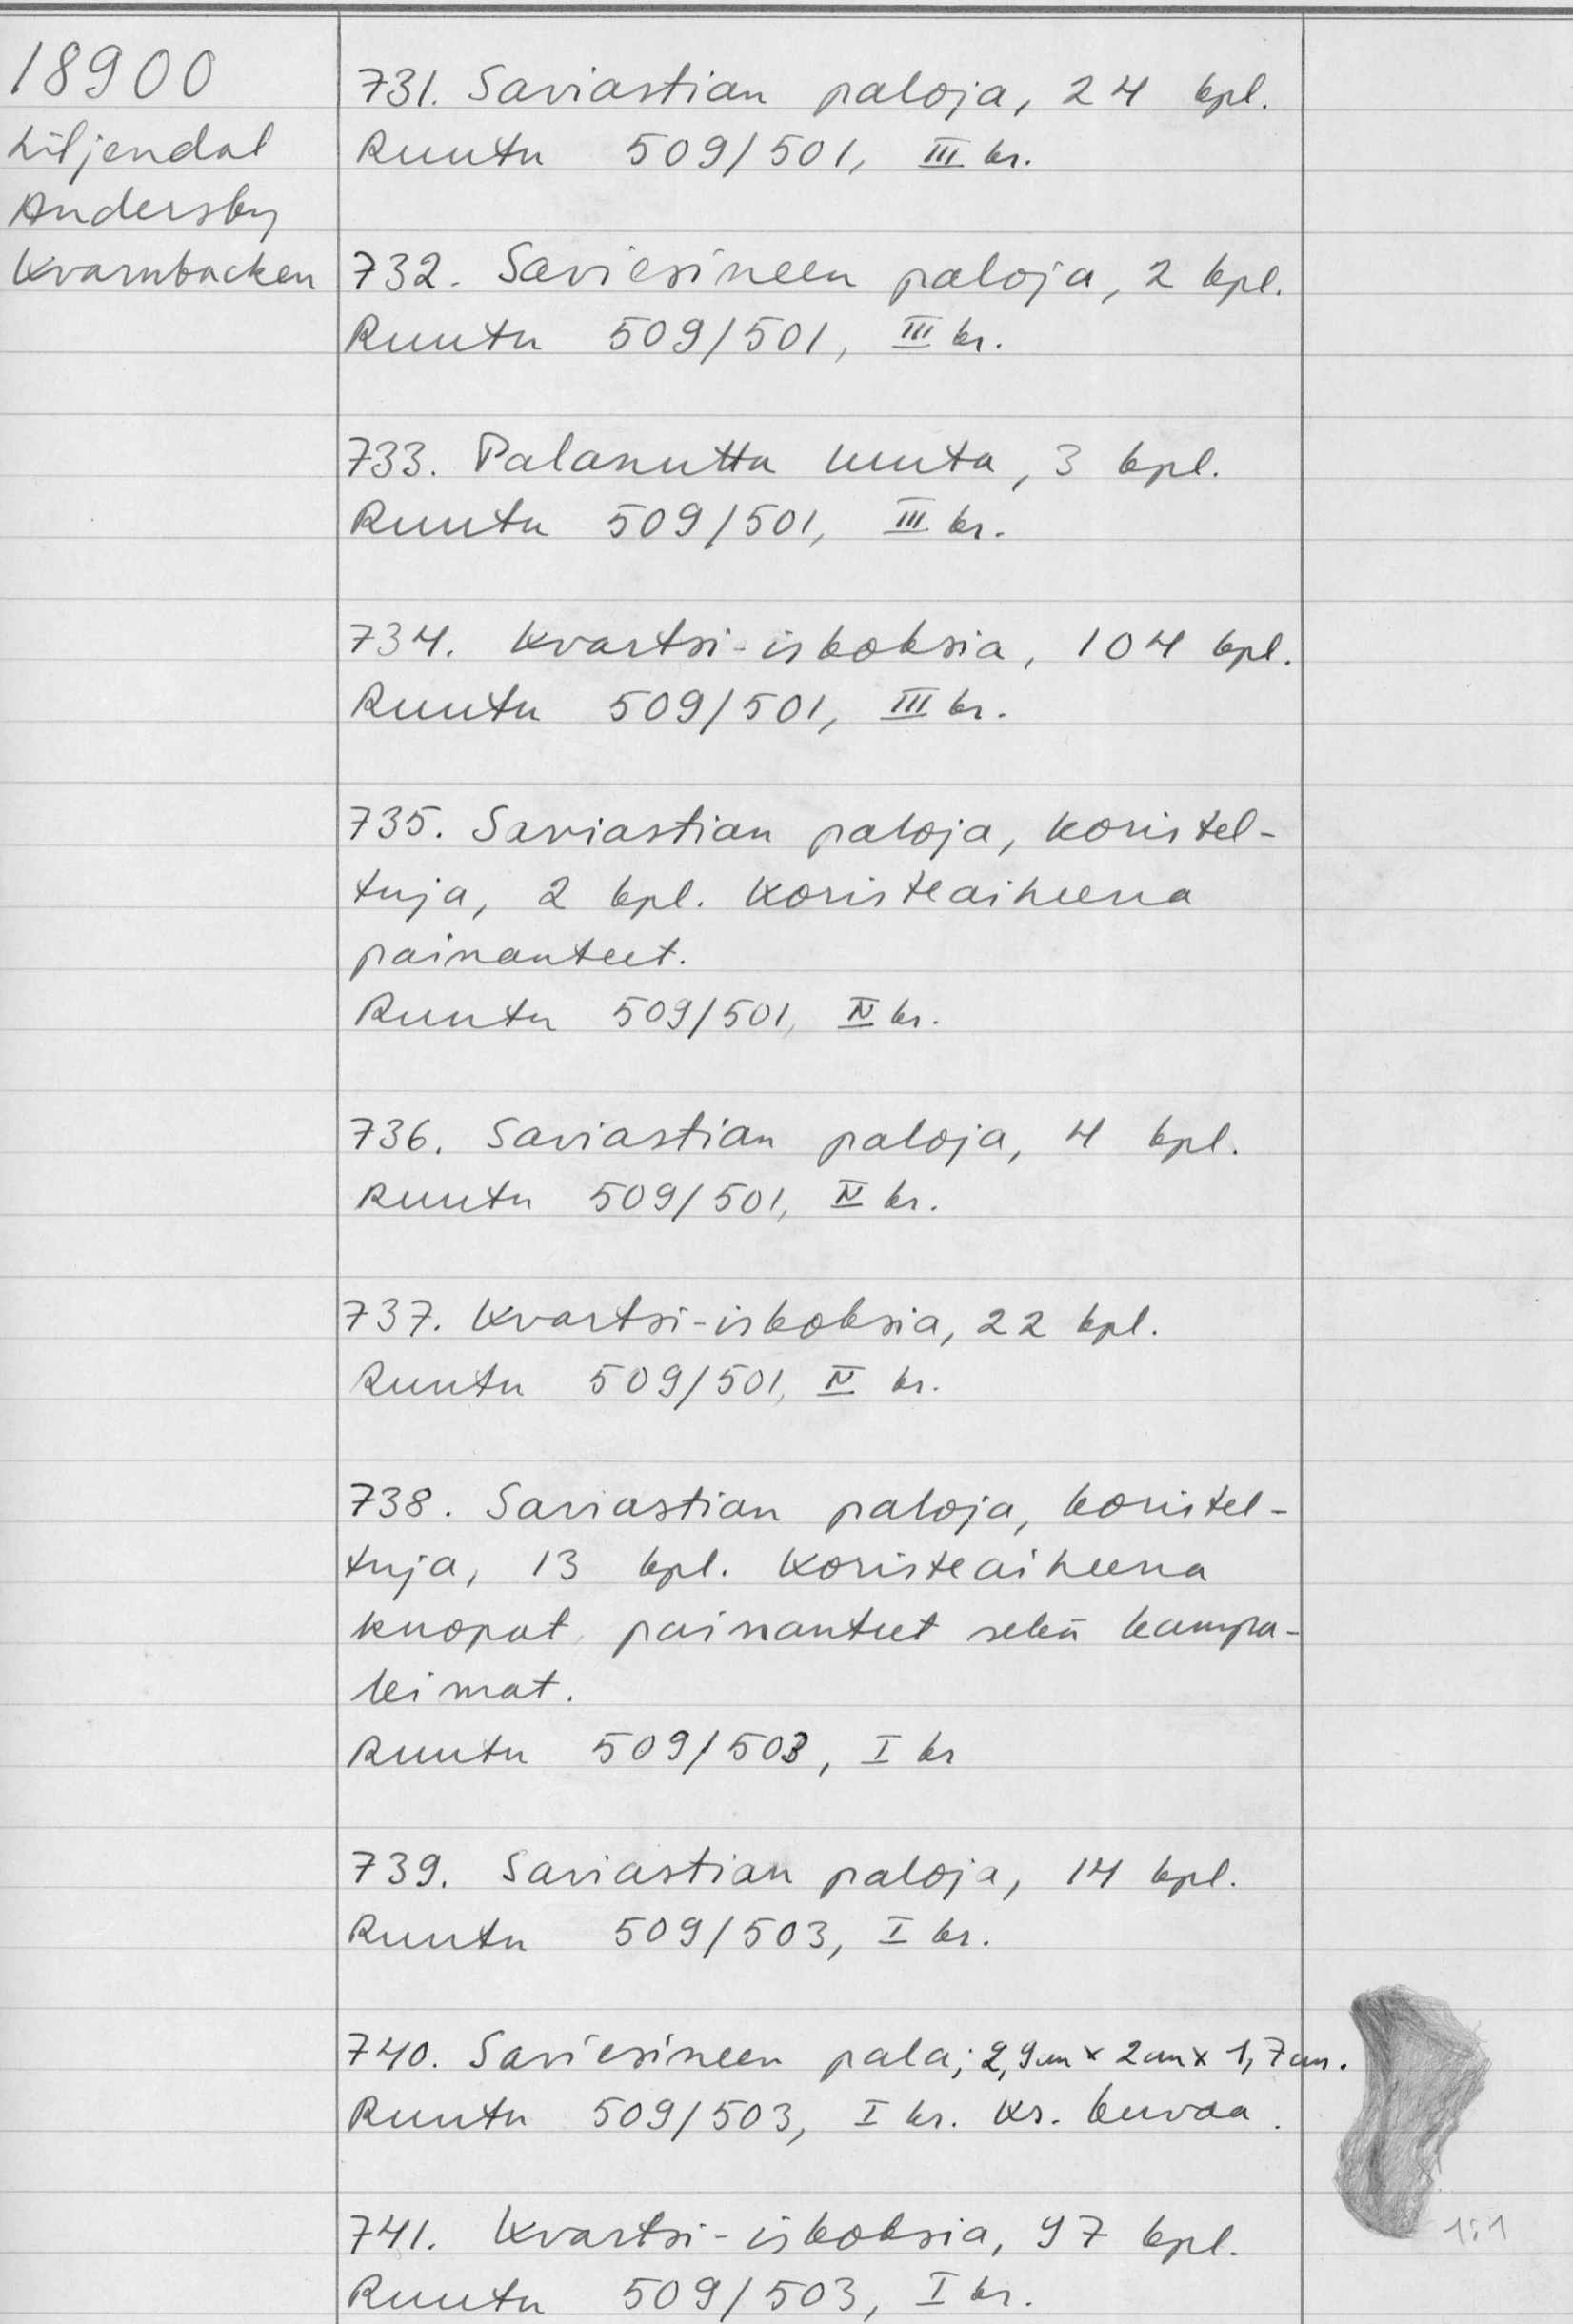 18900
Liljendal
Andersby
Kvarnbacken
731. Saviastian paloja, 24 kpl.
Ruutu 509/501, III kr.
732. Saviesineen paloja, 2 kpl.
Ruutu 509/501, III kr.
733. Palanutta luuta, 3 kpl.
Ruutu 509/501, III kr.
734. Kvartsi-iskoksia, 104 kpl.
Ruutu 509/501, III kr.
735. Saviastian paloja, koristel-
tuja, 2 kpl. Koristeaiheena
painanteet.
Ruutu 509/501, IV kr.
736. Saviastian paloja, 4 kpl.
Ruutu 509/501, IV kr.
737. Kvartsi-iskoksia, 22 kpl.
Ruutu 509/501, IV kr.
738. Saviastian paloja, koristel-
tuja, 13 kpl. Koristeaiheena
kuopat, painanteet sekä kampa-
leimat.
Ruutu 509/503, I kr
739. Saviastian paloja, 14 kpl.
Ruutu 509/503, I kr.
740. Saviesineen pala; 2,9cm x 2cm x 1,7cm.
Ruutu 509/503, I kr. Ks. kuvaa.
1:1
741. Kvartsi-iskoksia, 97 kpl.
Ruutu 509/503, I kr.